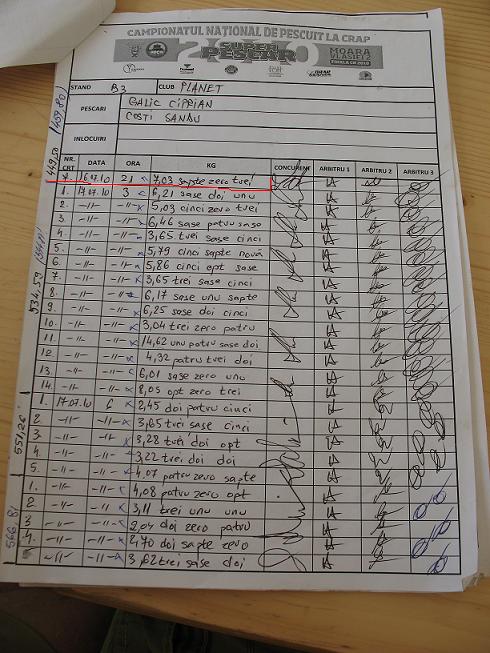 CAMPIONATUL NAȚIONAL DE PESCUIT LA CRAP
SUPER PESCAR
MOARA VLASIEI 2
FINALA CN 2010
STAND B3 CLUB PLANET
PESCARI GALIC CIPRIAN
COSTI SANDU
INLOCUIRI
NR. CRT DATA ORA KG CONCURENT ARBITRU 1 ARBITRU 2 ARBITRU 3
16.07.10 21 7,03 sapte zero trei
1. 17.07.10 3 6,21 sase doi unu
2. -11- -11- 5,03 cinci zero trei
3. -11- -11- 6,46 sase patru sase
4. -11- -11- 3,65 trei sase cinci
5. -11- -11- 5,79 cinci sapte nouă
6. -11- -11- 5,86 cinci opt sase
7. -11- -11- 3,65 trei sase cinci
8. -11- -11- 6,17 sase unu sapte
9. -11- -11- 6,25 sase doi cinci
10. -11- -11- 3,04 trei zero patru
11. -11- -11- 14,62 unu patru sase doi
12. -11- -11- 4,32 patru trei doi
13. -11- -11- 6,01 sase zero unu
14. -11- -11- 8,03 opt zero trei
1. 17.07.10 6 2,45 doi patru cinci
2. -11- -11- 3,65 trei sase cinci
3. -11- -11- 3,28 trei doi opt
4. -11- -11- 3,22 trei doi doi
5. -11- -11- 4,07 patru zero sapte
1. -11- -11- 4,08 patru zero opt
2. -11- -11- 3,11 trei unu unu
3. -11- -11- 2,04 doi zero patru
4. -11- -11- 2,70 doi sapte zero
-11- -11- 3,62 trei sase doi
449,50
534,59
551,26
566,81